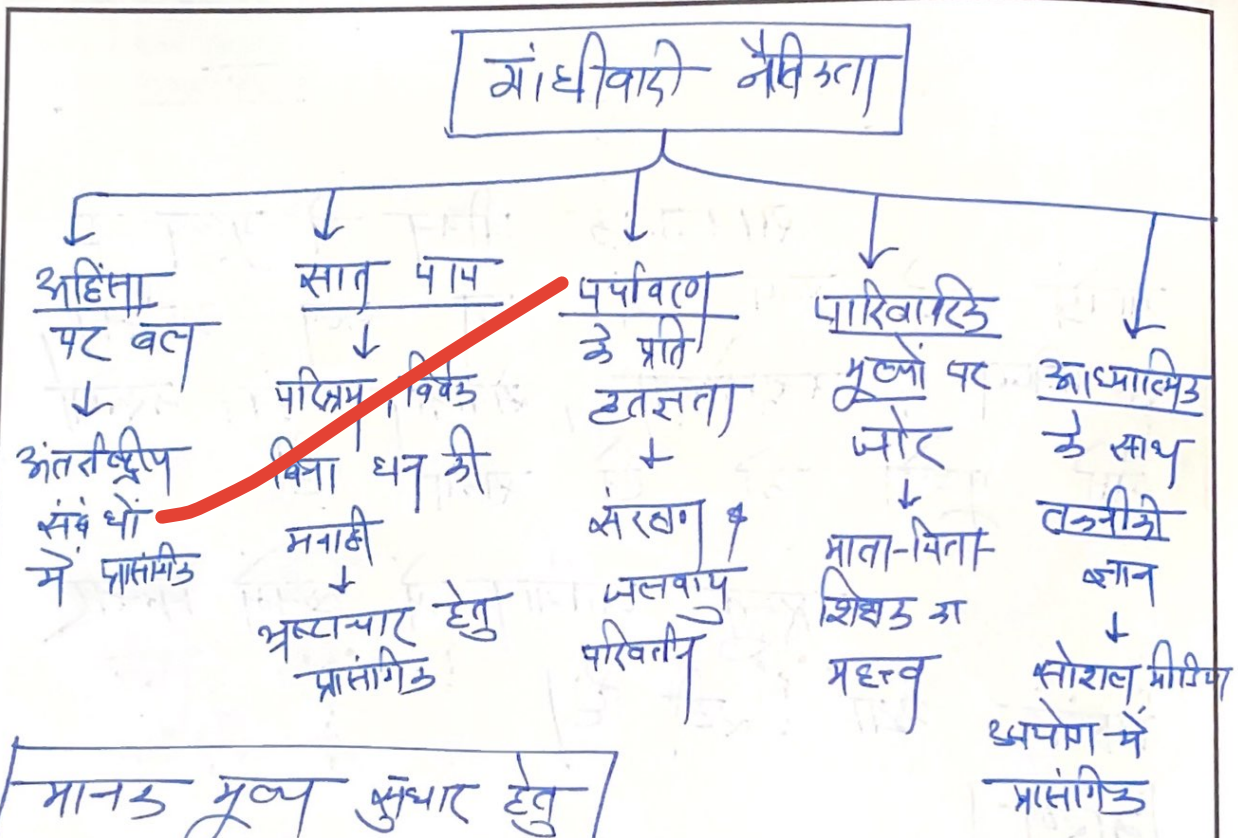 गांधीवादी नैतिकता
अहिंसा
पर बल
अंतर्राष्ट्रीय
संबंधों
में प्रासंगिक
सात पाप
परिश्रम, विवेक
बिना धन की
मनाही
भ्रष्टाचार हेतु
प्रासंगिक
पर्यावरण
के प्रति
कृतज्ञता
संरक्षण
जलवायु
परिवर्तन
पारिवारिक
मूल्यों पर
जोर
माता-पिता-
शिक्षक का
महत्त्व
आध्यात्मिक
के साथ
तकनीकी
ज्ञान
सोशल मीडिया
उपयोग में
प्रासंगिक
मानक मूल्य सुधार हेतु